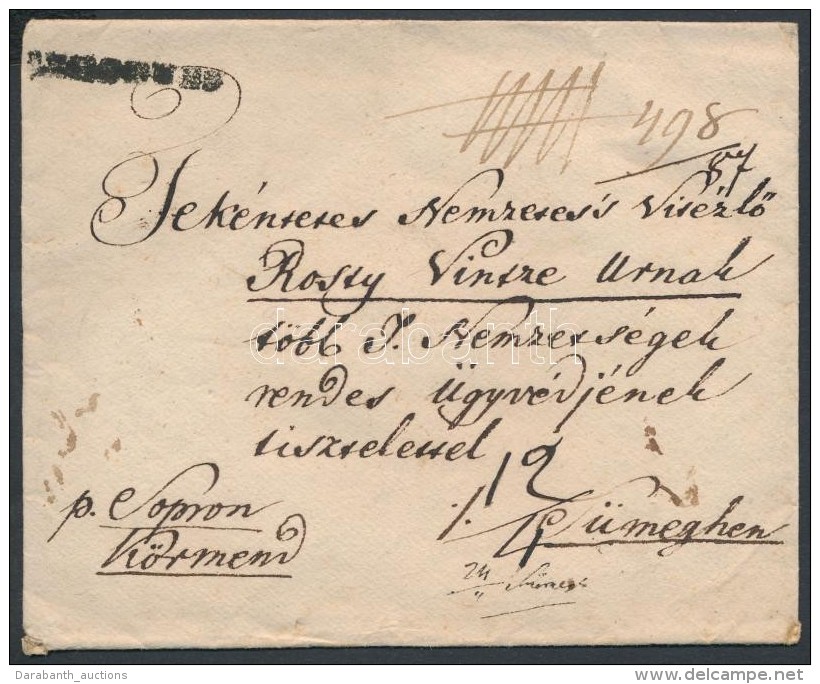 498
87
Tekéntetes Nemzetes 's Vitézlő
Rosty Vintze Urnak
több T. Nemzetségek
rendes Ügyvédjének
tisztelettel
12
p. Sopron
Körmend
/. Sümeghen
4
24
darabanth
Darabanth_auctions
delcampe.net